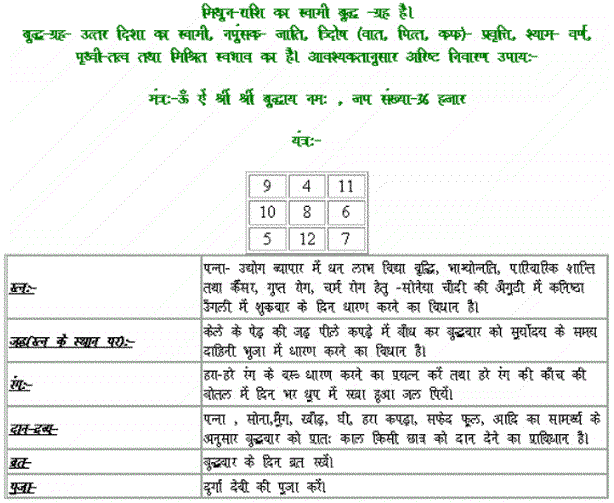 मिथुन-राशि का स्वामी बुद्ध -ग्रह है।
बुद्ध-ग्रह- उत्तर दिशा का स्वामी, नपुंसक- जाति, त्रिदोष (वात, पित्त, कफ)- प्रवृत्ति, श्याम- वर्ण,
पृथ्वी-तत्व तथा मिश्रित स्वभाव का है। आवश्यकतानुसार अरिष्ट निवारण उपायः-
मंत्रः-ऊँ ऐं श्रीं श्रीं बुद्धाय नमः , जप संख्या-36 हजार
यंत्रः-
9 4 11
10 8 6
5 12 7
रत्नः-
पन्ना- उद्योग व्यापार में धन लाभ विद्या बृद्धि, भाग्योन्नति, पारिवारिक शान्ति
तथा कैंसर, गुप्त रोग, चर्म रोग हेतु -सोनेया चाँदी की अँगूठी में कनिष्ठा
उँगली में शुक्रवार के दिन धारण करने का विधान है।
जड़(रत्न के स्थान पर):-
केले के पेड़ की जड़ पीले कपड़े में बाँध कर बुद्धवार को सुर्योदय के समय
दाहिनी भुजा में धारण करने का विधान है।
रंगः-
हरा-हरे रंग के वस्त्र धारण करने का प्रयत्न करें तथा हरे रंग की काँच की
बोतल में दिन भर धूप में रखा हुआ जल पियें।
दान-द्रव्य-
पन्ना , सोना,मूँग, खाँड़, घी, हरा कपड़ा, सफेद फूल, आदि का सामर्थ्य के
अनुसार बुद्धवार को प्रातः काल किसी छात्र को दान देने का प्राविधान है।
व्रत-
बुद्धवार के दिन व्रत रखें।
पूजा-
दुर्गा देवी की पूजा करें।